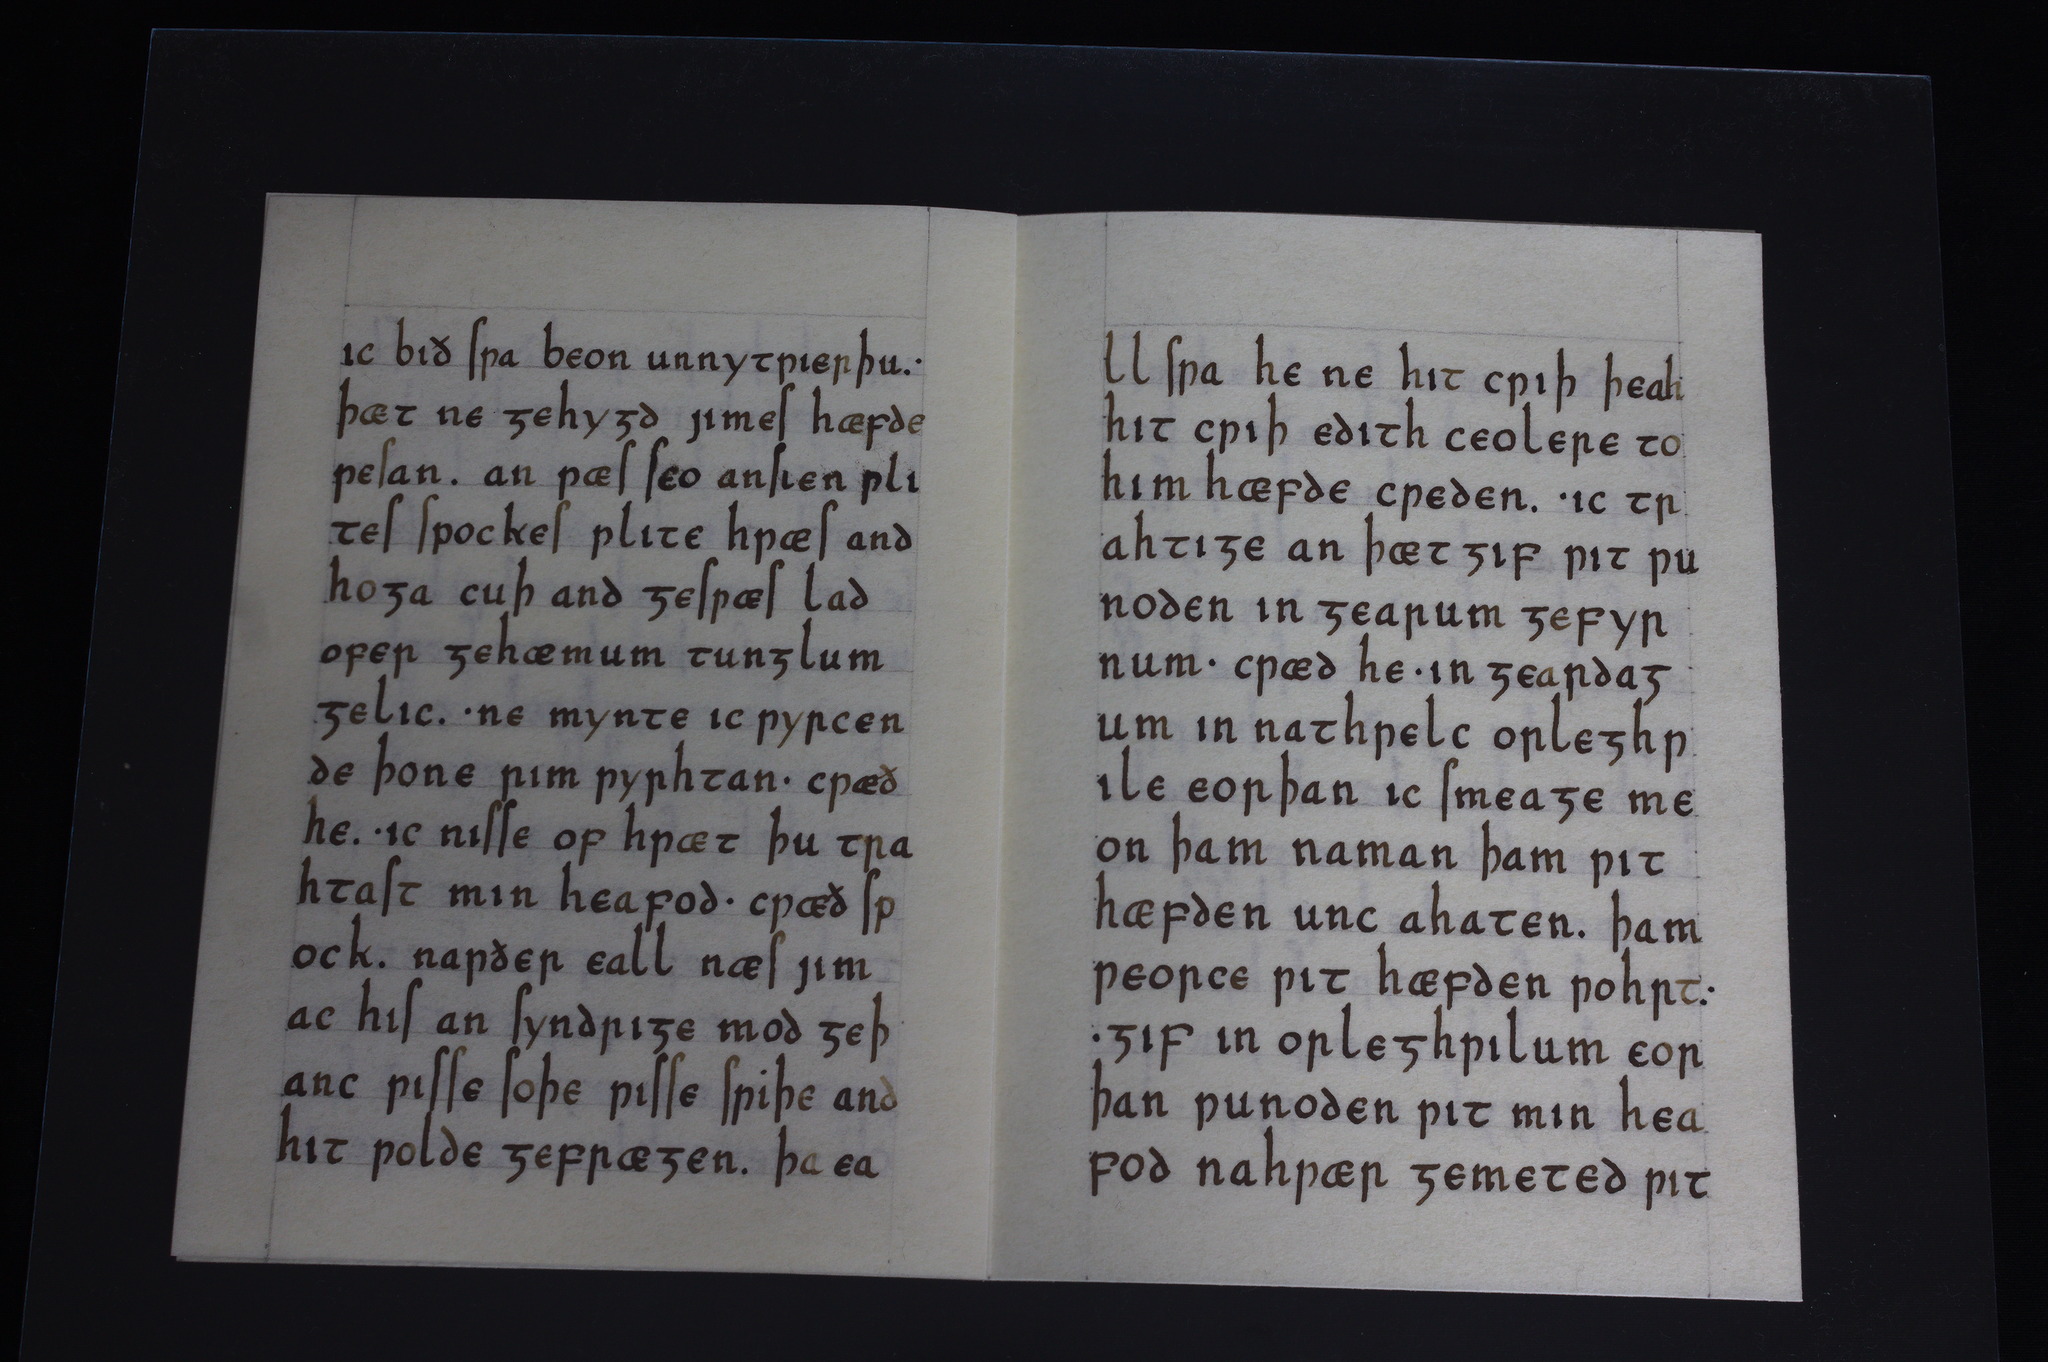 ic bið ſƿa beon unnytƿierþu.·
þæt ne gehygd jimeſ hæfde
ƿeſan. an ƿæſ ſeo anſien ƿli
teſ ſpockeſ ƿlite hƿæſ and
hoga cuþ and geſƿæſ lad
ofer gehæmum tunglum
gelic. ·ne mynte ic ƿyrcen
de þone rim ƿyrhtan· cƿæð
he. ·ic niſſe of hƿæt þu tra
htaſt min heafod· cƿæð ſp
ock. naƿðer eall næſ jim
ac hiſ an ſyndrige mod geþ
anc ƿiſſe ſoþe ƿiſſe ſƿiþe and
hit ƿolde gefrægen. þa ea
ll ſƿa he ne hit cƿiþ þeah
hit cƿiþ edith ceolere to
him hæfde cƿeden. ·ic tr
ahtige an þæt gif ƿit ƿu
noden in gearum gefyr
num· cƿæd he ·in geardag
um in nathƿelc orleghƿ
ile eorþan ic ſmeage me
on þam naman þam ƿit
hæfden unc ahaten. þam
ƿeorce ƿit hæfden ƿohrt.·
·gif in orleghƿilum eor
þan ƿunoden ƿit min hea
fod nahƿær gemeted ƿit